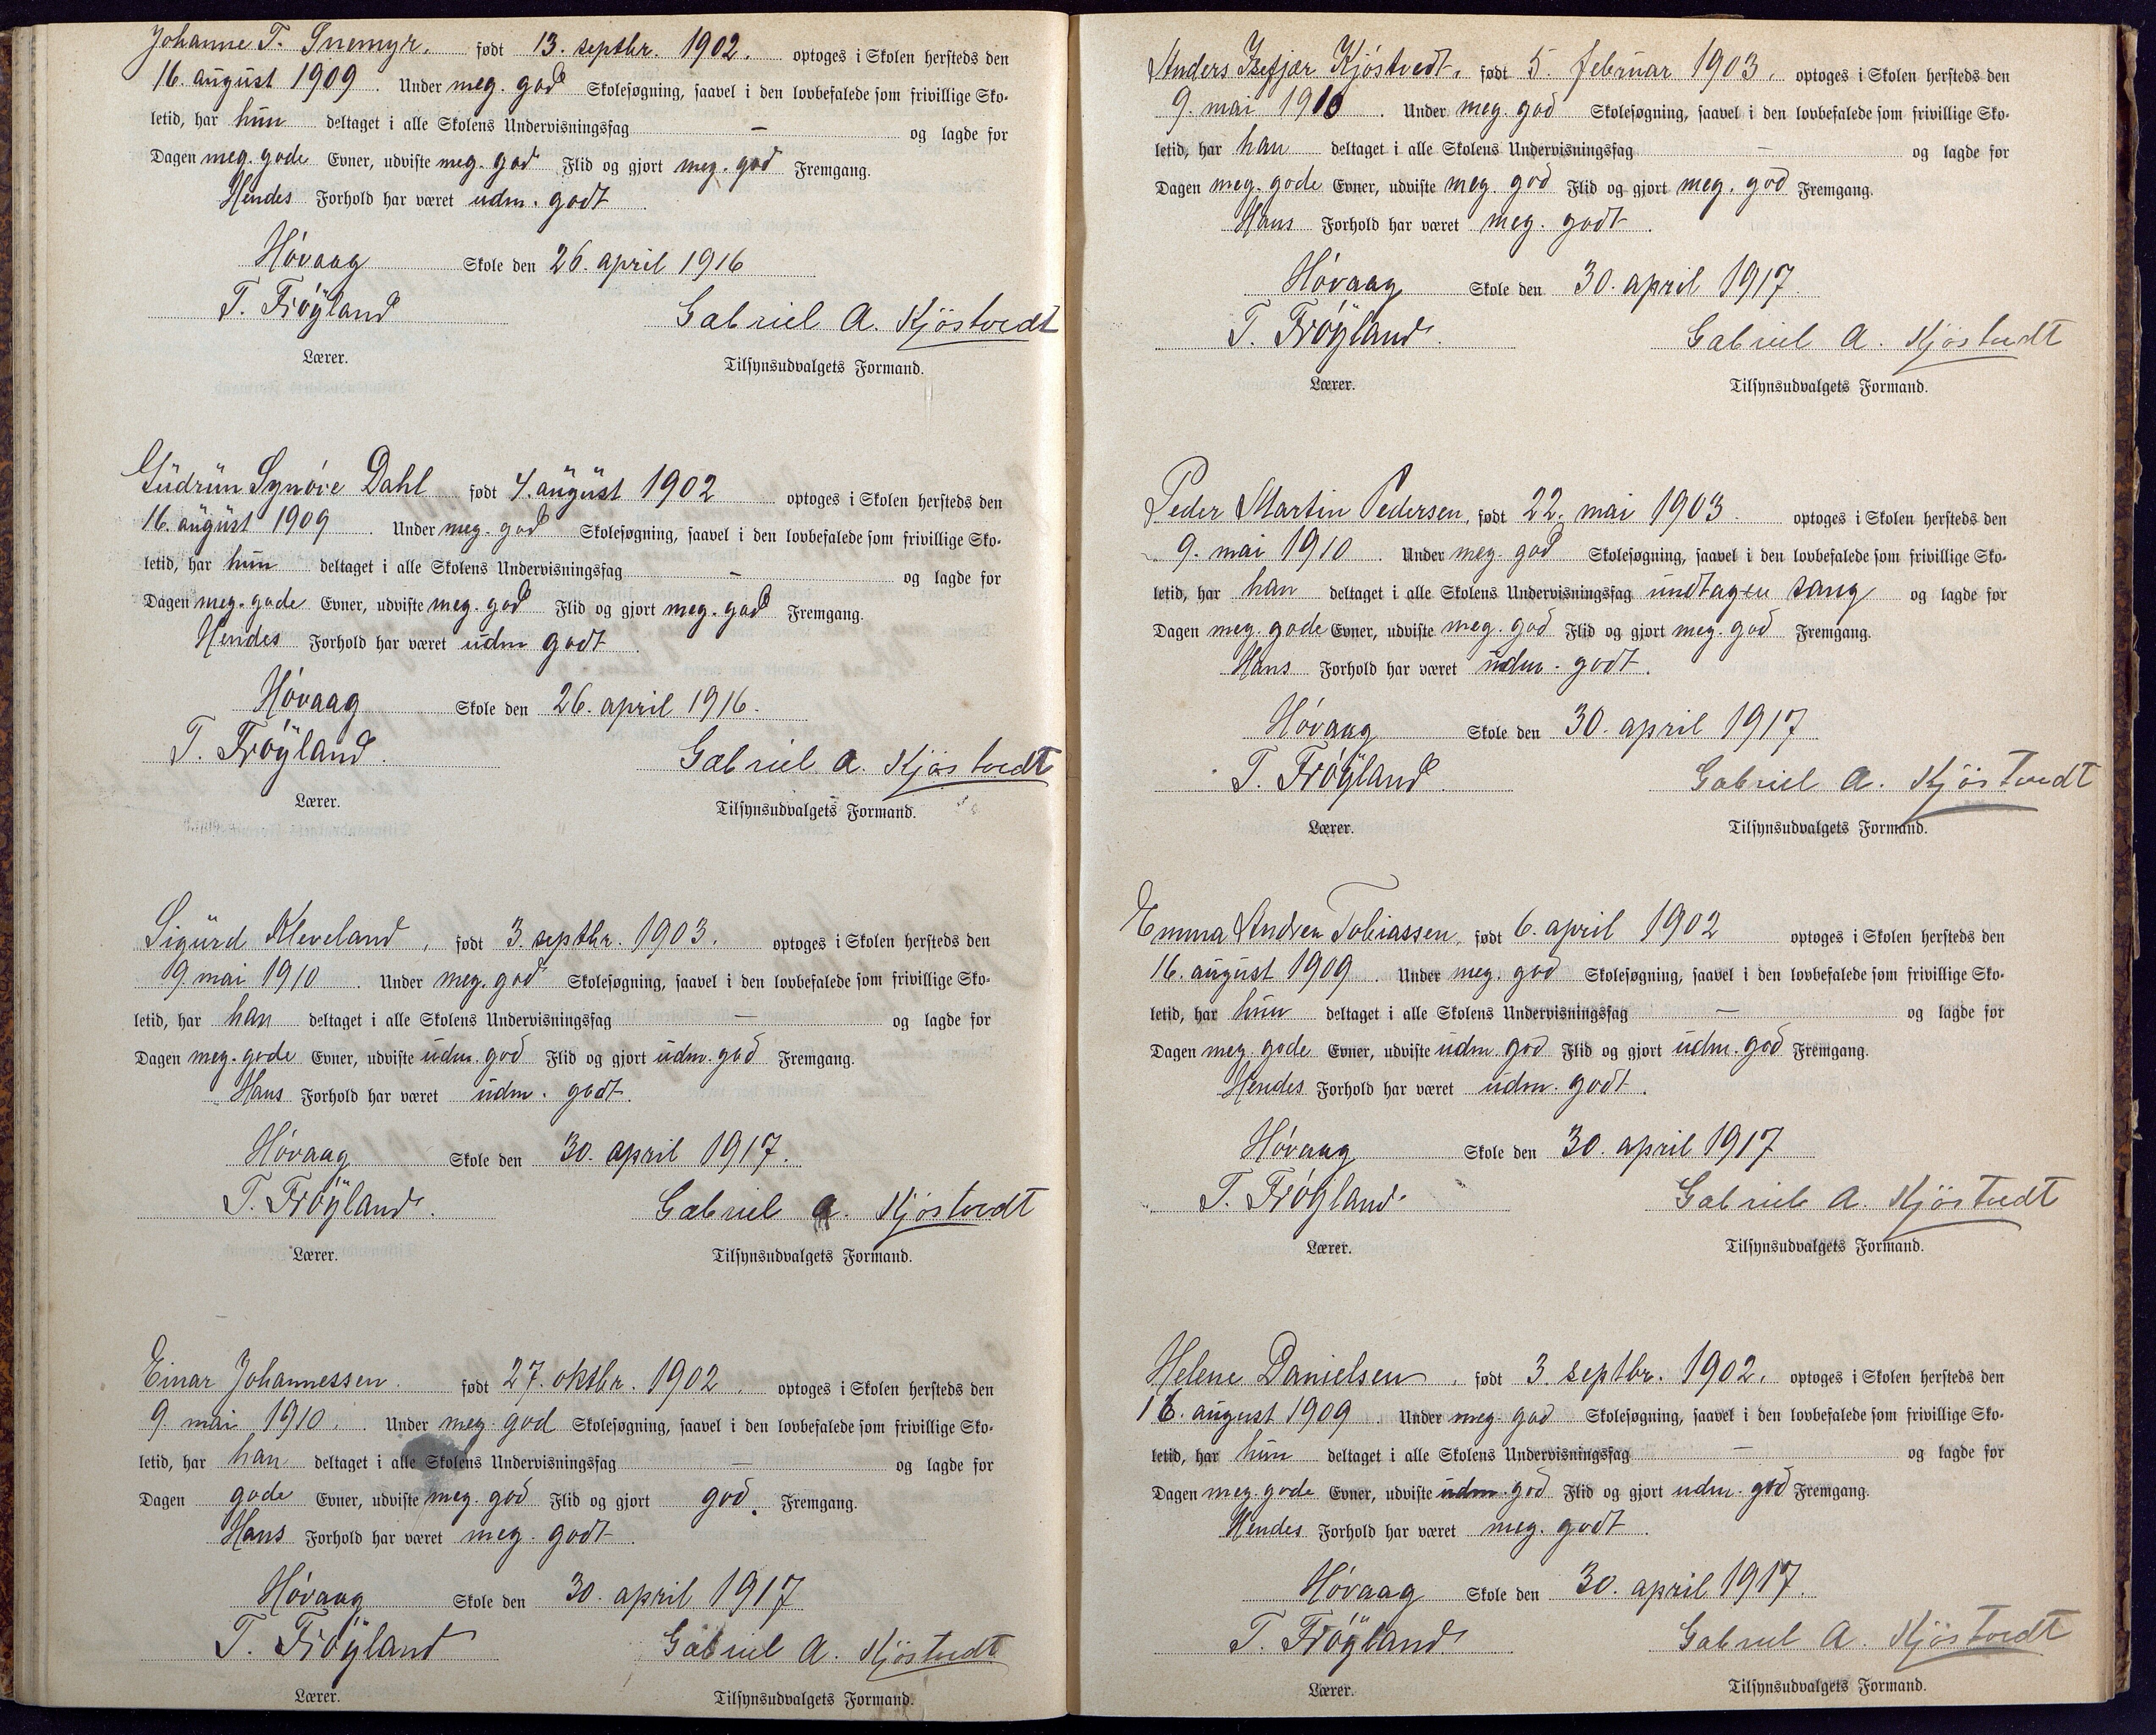 Johanne T. Snemyr. født 13. septbr. 1902. optoges i Skolen hersteds den
16. august 1909. Under meg. god Skolesøgning, saavel i den lovbefalede som frivillige Sko-
letid, har hun deltaget i alle Skolens Undervisningsfag — og lagde for
Dagen meg. gode Evner, udviste meg. god Flid og gjort meg. god Fremgang.
Hendes Forhold har været udm. godt.
Høvaag Skole den 26. april 1916
T. Frøyland Gabriel A. Kjöstvedt
Lærer. Tilsynsudvalgets Formand.
Gudrun Synøve Dahl født 4. august 1902 optoges i Skolen hersteds den
16. august 1909. Under meg. god Skolesøgning, saavel i den lovbefalede som frivillige Sko-
letid, har hun deltaget i alle Skolens Undervisningsfag — og lagde for
Dagen meg. gode Evner, udviste meg. god Flid og gjort meg. god Fremgang.
Hendes Forhold har været udm godt.
Høvaag Skole den 26. april 1916.
T. Frøyland. Gabriel A. Kjöstvedt
Lærer. Tilsynsudvalgets Formand.
Sigurd Kleveland, født 3. septbr. 1903. optoges i Skolen hersteds den
9. mai 1910. Under meg. god Skolesøgning, saavel i den lovbefalede som frivillige Sko-
letid, har han deltaget i alle Skolens Undervisningsfag — og lagde for
Dagen meg. gode Evner, udviste udm. god Flid og gjort udm. god Fremgang.
Hans Forhold har været udm. godt.
Høvaag Skole den 30. april 1917.
T. Frøyland. Gabriel A. Kjöstvedt
Lærer. Tilsynsudvalgets Formand.
Einar Johannessen. født 27. oktbr. 1902. optoges i Skolen hersteds den
9. mai 1910. Under meg. god Skolesøgning, saavel i den lovbefalede som frivillige Sko-
letid, har han deltaget i alle Skolens Undervisningsfag — og lagde for
Dagen gode Evner, udviste meg. god Flid og gjort god. Fremgang.
Hans Forhold har været meg. godt.
Høvaag Skole den 30. april 1917
T. Frøyland Gabriel A. Kjöstvedt
Lærer. Tilsynsudvalgets Formand.
Anders Isefjær Kjøstvedt, født 5. februar 1903. optoges i Skolen hersteds den
9. mai 1910. Under meg. god Skolesøgning, saavel i den lovbefalede som frivillige Sko-
letid, har han deltaget i alle Skolens Undervisningsfag — og lagde for
Dagen meg. gode Evner, udviste meg. god Flid og gjort meg. god Fremgang.
Hans Forhold har været meg. godt.
Høvaag Skole den 30. april 1917.
T. Frøyland. Gabriel A. Kjöstvedt
Lærer. Tilsynsudvalgets Formand.
Peder Martin Pedersen, født 22. mai 1903 optoges i Skolen hersteds den
9. mai 1910. Under meg. god Skolesøgning, saavel i den lovbefalede som frivillige Sko-
letid, har han deltaget i alle Skolens Undervisningsfag undtagen sang og lagde for
Dagen meg. gode Evner, udviste meg. god Flid og gjort meg. god Fremgang.
Hans Forhold har været udm. godt.
Høvaag Skole den 30. april 1917
T. Frøyland. Gabriel A. Kjöstvedt
Lærer. Tilsynsudvalgets Formand.
Emma Andrea Tobiassen, født 6. april 1902 optoges i Skolen hersteds den
16. august 1909. Under meg. god Skolesøgning, saavel i den lovbefalede som frivillige Sko-
letid, har hun deltaget i alle Skolens Undervisningsfag — og lagde for
Dagen meg. gode Evner, udviste udm. god Flid og gjort udm. god Fremgang.
Hendes Forhold har været udm. godt.
Høvaag Skole den 30. april 1917
T. Frøyland. Gabriel A. Kjöstvedt
Lærer. Tilsynsudvalgets Formand.
Helene Danielsen, født 3. septbr. 1902. optoges i Skolen hersteds den
16. august 1909. Under meg. god Skolesøgning, saavel i den lovbefalede som frivillige Sko-
letid, har hun deltaget i alle Skolens Undervisningsfag — og lagde for
Dagen meg. gode Evner, udviste udm. god Flid og gjort udm. god Fremgang.
Hendes Forhold har været meg. godt.
Høvaag Skole den 30. april 1917.
T. Frøyland. Gabriel A. Kjöstvedt
Lærer. Tilsynsudvalgets Formand.